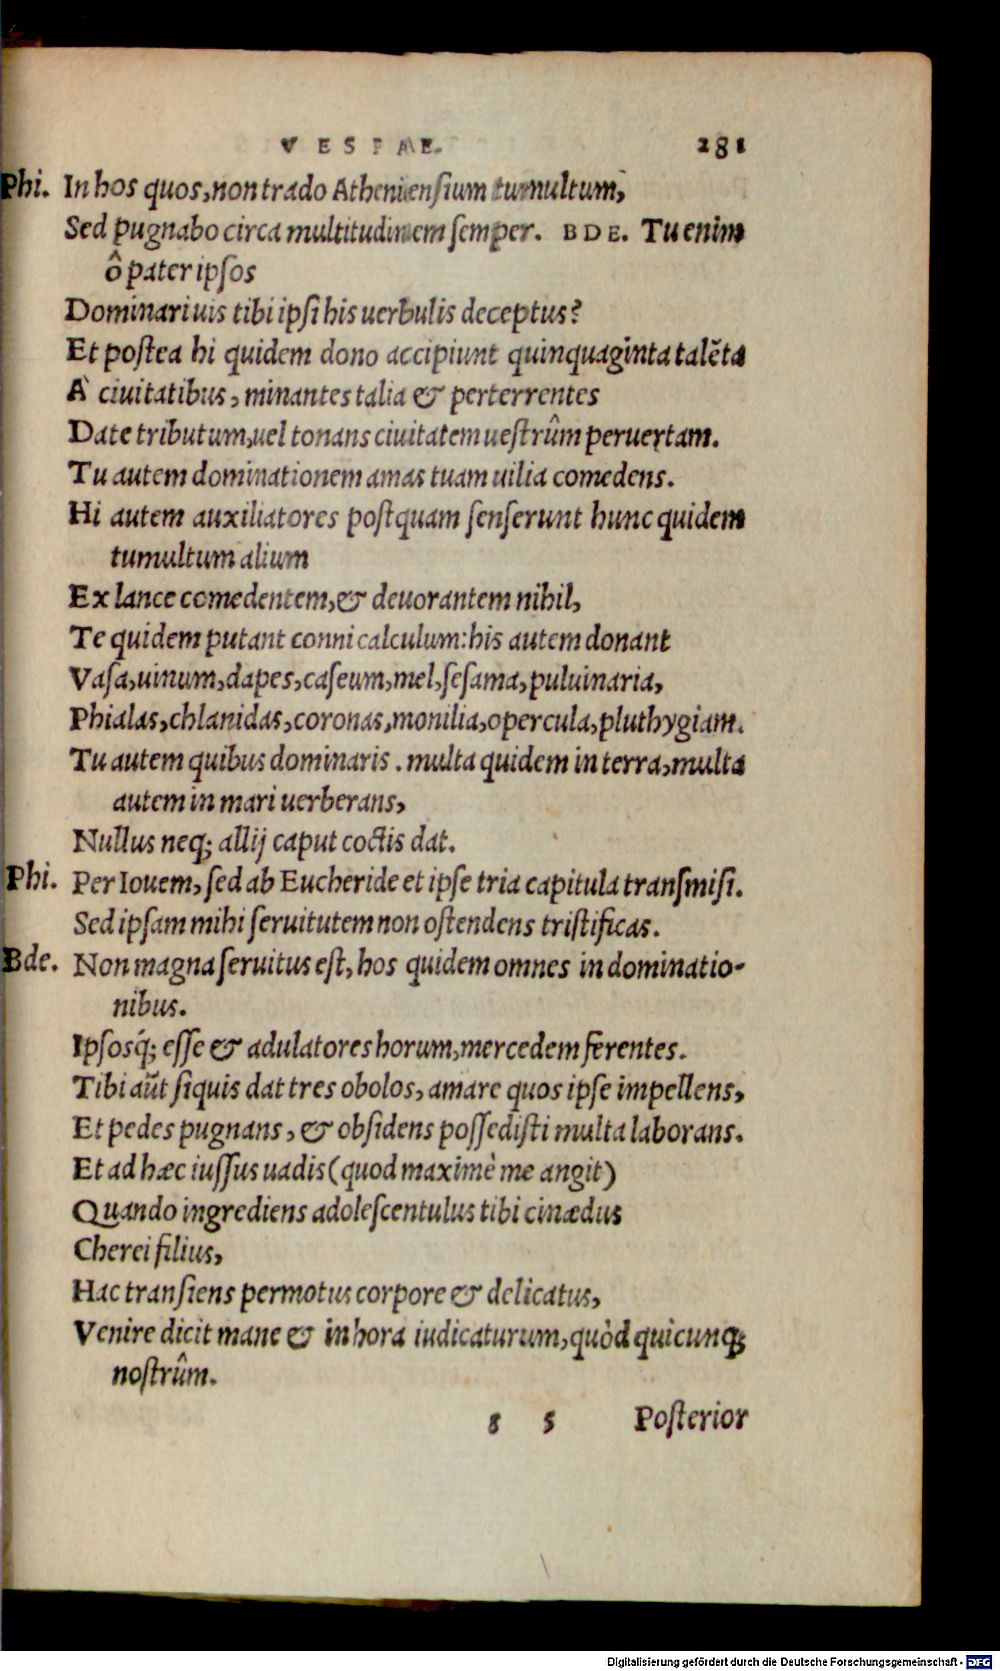 VESPAE. 281
Phi. In hos quos, non trado Atheniensium tumultum,
Sed pugnabo circa multitudinem semper. BDE. Tu enim
ô pater ipsos
Dominari uis tibi ipsi his uerbulis deceptus?
Et postea hi quidem dono accipiunt quinquaginta talēta
À ciuitatibus, minantes talia & perterrentes
Date tributum, uel tonans ciuitatem uestrûm peruertam.
Tu autem dominationem amas tuam uilia comedens.
Hi autem auxiliatores postquam senserunt hunc quidem
tumultum alium
Ex lance comedentem, & deuorantem nihil,
Te quidem putant conni calculum: his autem donant
Vasa, uinum, dapes, caseum, mel, sesama, puluinaria,
Phialas, chlanidas, coronas, monilia, opercula, pluthygiam.
Tu autem quibus dominaris. multa quidem in terra, multa
autem in mari uerberans,
Nullus neq; allij caput coctis dat.
Phi. Per Iouem, sed ab Eucheride et ipse tria capitula transmisi.
Sed ipsam mihi seruitutem non ostendens tristificas.
Bde. Non magna seruitus est, hos quidem omnes in dominatio-
nibus.
Ipsosq́; esse & adulatores horum, mercedem ferentes.
Tibi aūt siquis dat tres obolos, amare quos ipse impellens,
Et pedes pugnans, & obsidens possedisti multa laborans.
Et ad hæc iussus uadis (quod maximè me angit)
Quando ingrediens adolescentulus tibi cinædus
Cherei filius,
Hac transiens permotus corpore & delicatus,
Venire dicit mane & in hora iudicaturum, quòd quicunq;
nostrûm.
s 5 Posterior
Digitalisierung gefördert durch die Deutsche Forschungsgemeinschaft - DFG